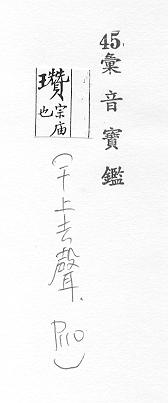 45.彙音寶鑑
瓚宗庙也
(干上去聲. P110)